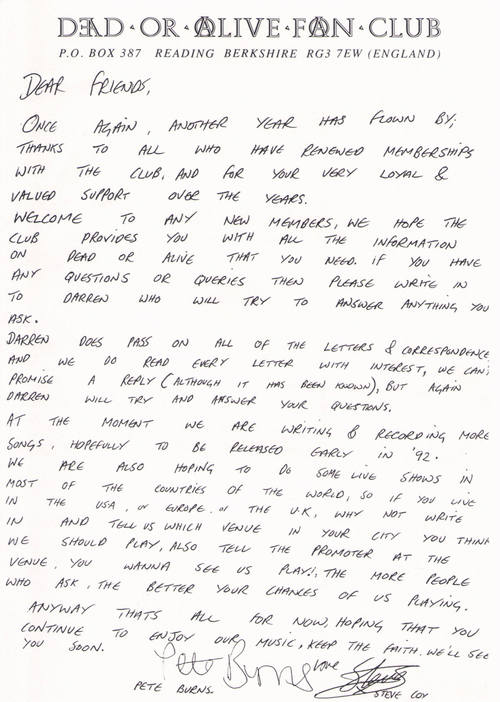 DEAD·OR·ALIVE·FAN·CLUB
P.O. BOX 387 READING BERKSHIRE RG3 7EW (ENGLAND)
DEAR FRIENDS,
ONCE AGAIN, ANOTHER YEAR HAS FLOWN BY;
THANKS TO ALL WHO HAVE RENEWED MEMBERSHIPS
WITH THE CLUB, AND FOR YOUR VERY LOYAL &
VALUED SUPPORT OVER THE YEARS.
WELCOME TO ANY NEW MEMBERS, WE HOPE THE
CLUB PROVIDES YOU WITH ALL THE INFORMATION
ON DEAD OR ALIVE THAT YOU NEED. IF YOU HAVE
ANY QUESTIONS OR QUERIES THEN PLEASE WRITE IN
TO DARREN WHO WILL TRY TO ANSWER ANYTHING YOU
ASK.
DARREN DOES PASS ON ALL OF THE LETTERS & CORRESPONDENCE
AND WE DO READ EVERY LETTER WITH INTEREST, WE CAN'T
PROMISE A REPLY (ALTHOUGH IT HAS BEEN KNOWN), BUT AGAIN
DARREN WILL TRY AND ANSWER YOUR QUESTIONS.
AT THE MOMENT WE ARE WRITING & RECORDING MORE
SONGS, HOPEFULLY TO BE RELEASED EARLY IN '92.
WE ARE ALSO HOPING TO DO SOME LIVE SHOWS IN
MOST OF THE COUNTRIES OF THE WORLD, SO IF YOU LIVE
IN THE USA, or EUROPE. or THE U.K, WHY NOT WRITE
IN AND TELL US WHICH VENUE IN YOUR CITY YOU THINK
WE SHOULD PLAY, ALSO TELL THE PROMOTER AT THE
VENUE, YOU WANNA SEE US PLAY!, THE MORE PEOPLE
WHO ASK, THE BETTER YOUR CHANCES OF US PLAYING.
ANYWAY THATS ALL FOR NOW, HOPING THAT YOU
CONTINUE TO ENJOY OUR MUSIC, KEEP THE FAITH. WE'LL SEE
YOU SOON.
Love
Pete Burns Steve
PETE BURNS. STEVE COY